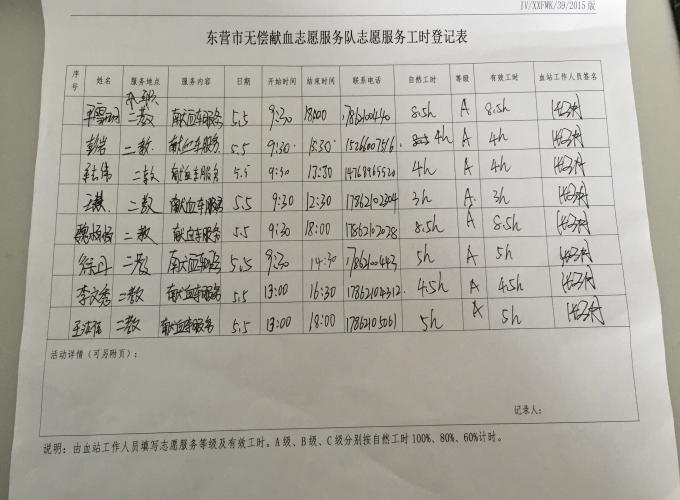 IV/XXFWK/39/2015版
东营市无偿献血志愿服务队志愿服务工时登记表
序号 姓名 服务地点 服务内容 日期 开始时间 结束时间 联系电话 自然工时 等级 有效工时 血站工作人员签名
二教 献血车服务 5.5 9:30 18:00 17862100440 8.5h A 8.5h
彭岩 二教 献血车服务 5.5 9:30 13:30 4h A 4h
二教 献血车服务 5.5 9:30 13:30 14768965520 4h A 4h
王慧 二教 献血车服务 5.5 9:30 12:30 17862102304 3h A 3h
二教 献血车服务 5.5 9:30 18:00 17862102028 8.5h A 8.5h
徐丹 二教 献血车服务 5.5 9:30 14:30 17862100443 5h A 5h
李文秀 二教 献血车服务 5.5 13:00 16:30 17862104312 4.5h A 4.5h
二教 献血车服务 5.5 13:00 18:00 17862105061 5h A 5h
活动详情（可另附页）：
记录人：
说明：由血站工作人员填写志愿服务等级及有效工时。A级、B级、C级分别按自然工时100%、80%、60%计时。